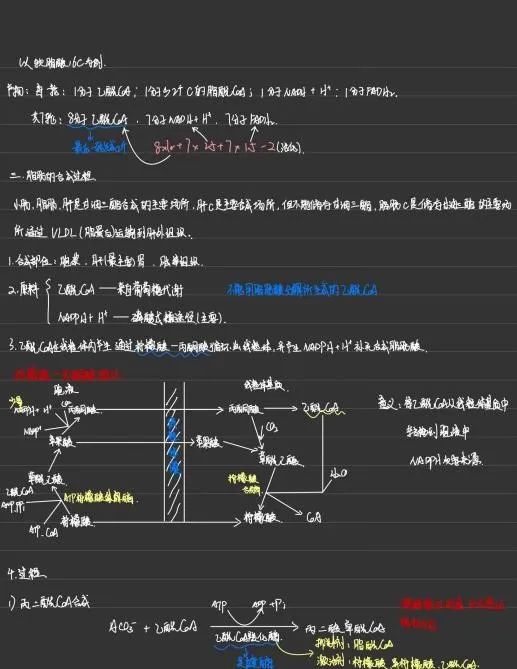 以软脂酸16C为例.
产物：单轮：1分子乙酰CoA；1分子少2个C的脂酰CoA；1分子NADH + H⁺；1分子FADH₂.
共7轮：8分子乙酰CoA . 7分子NADH+H⁺ . 7分子FADH₂.
-2(活化)
二.脂肪的合成过程
小肠，脂肪，肝是甘油三酯合成的主要场所，肝C是主要合成场所，但不能储存甘油三酯，脂肪C是储存甘油三酯的主要场
所 通过 VLDL(脂蛋白)运输到肝外组织.
1.合成部位：胞浆
2.原料
乙酰CoA —— 来自葡萄糖代谢
不能用脂肪酸分解所生成的乙酰CoA
NADPH + H⁺ —— 磷酸戊糖途径(主要).
3.乙酰CoA在线粒体内产生 通过柠檬酸—丙酮酸循环出线粒体，并产生NADPH+H⁺补充合成脂肪酸.
胞液
线粒体基质
NADPH + H⁺
CO₂
丙酮酸
丙酮酸
乙酰CoA
意义：将乙酰CoA从线粒体基质中
转移到胞液中
NADP⁺
苹果酸
苹果酸
CO₂
草酰乙酸
H₂O
草酰乙酸
乙酰CoA
ATP柠檬酸裂解酶
柠檬酸
合酶
ATP CoA
柠檬酸
柠檬酸
CoA
4.过程
1) 丙二酰CoA合成
ATP
ADP + Pi
+ 乙酰CoA
乙酰CoA羧化酶
丙二酸单酰CoA
抑制剂：脂酰CoA
激活剂：柠檬酸 异柠檬酸 乙酰CoA